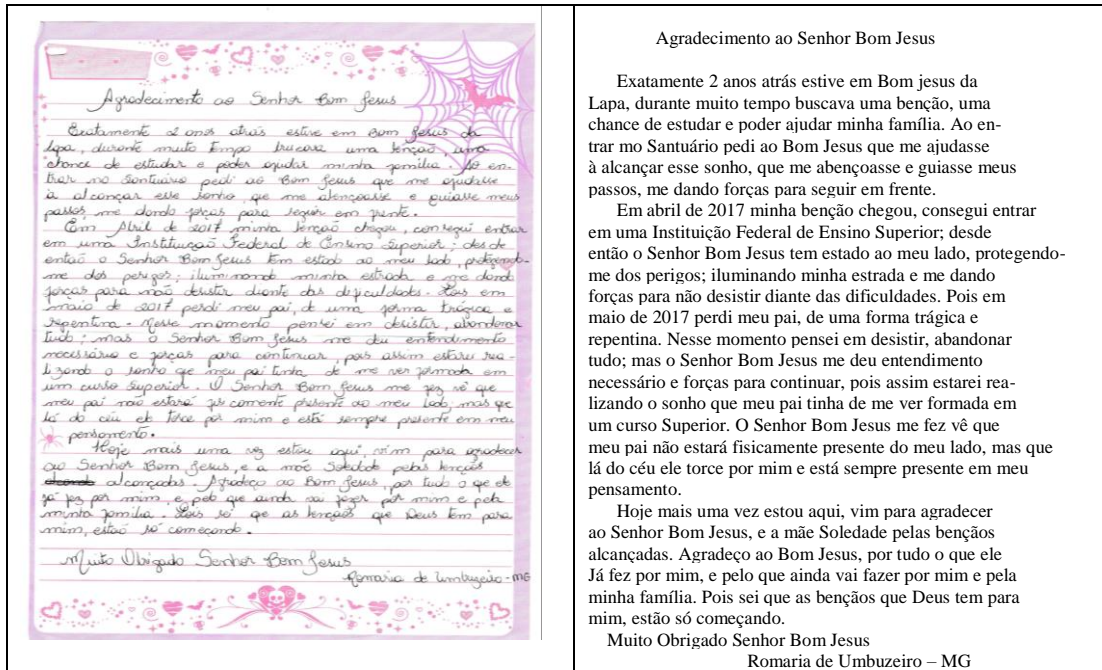 Agradecimento ao Senhor Bom Jesus
Exatamente 2 anos atrás estive em Bom Jesus da
Lapa, durante muito tempo buscava uma benção, uma
chance de estudar e poder ajudar minha família. Ao en-
trar no Santuário pedi ao Bom Jesus que me ajudasse
à alcançar esse sonho, que me abençoasse e guiasse meus
passos, me dando forças para seguir em frente.
Em Abril de 2017 minha benção chegou, consegui entrar
em uma Instituição Federal de Ensino Superior; desde
então o Senhor Bom Jesus tem estado ao meu lado, protegendo-
me dos perigos; iluminando minha estrada e me dando
forças para não desistir diante das dificuldades. Pois em
maio de 2017 perdi meu pai, de uma forma trágica e
repentina. Nesse momento pensei em desistir, abandonar
tudo; mas o Senhor Bom Jesus me deu entendimento
necessário e forças para continuar, pois assim estarei rea-
lizando o sonho que meu pai tinha de me ver formada em
um curso Superior. O Senhor Bom Jesus me fez vê que
meu pai não estará fisicamente presente ao meu lado, mas que
lá do céu ele torce por mim e está sempre presente em meu
pensamento.
Hoje mais uma vez estou aqui, vim para agradecer
ao Senhor Bom Jesus, e a mãe Soledade pelas bençãos
alcançadas. Agradeço ao Bom Jesus, por tudo o que ele
já fez por mim, e pelo que ainda vai fazer por mim e pela
minha família. Pois sei que as bençãos que Deus tem para
mim, estão só começando.
Muito Obrigado Senhor Bom Jesus
Romaria de Umbuzeiro - MG
Agradecimento ao Senhor Bom Jesus
Exatamente 2 anos atrás estive em Bom jesus da
Lapa, durante muito tempo buscava uma benção, uma
chance de estudar e poder ajudar minha família. Ao en-
trar mo Santuário pedi ao Bom Jesus que me ajudasse
à alcançar esse sonho, que me abençoasse e guiasse meus
passos, me dando forças para seguir em frente.
Em abril de 2017 minha benção chegou, consegui entrar
em uma Instituição Federal de Ensino Superior; desde
então o Senhor Bom Jesus tem estado ao meu lado, protegendo-
me dos perigos; iluminando minha estrada e me dando
forças para não desistir diante das dificuldades. Pois em
maio de 2017 perdi meu pai, de uma forma trágica e
repentina. Nesse momento pensei em desistir, abandonar
tudo; mas o Senhor Bom Jesus me deu entendimento
necessário e forças para continuar, pois assim estarei rea-
lizando o sonho que meu pai tinha de me ver formada em
um curso Superior. O Senhor Bom Jesus me fez vê que
meu pai não estará fisicamente presente do meu lado, mas que
lá do céu ele torce por mim e está sempre presente em meu
pensamento.
Hoje mais uma vez estou aqui, vim para agradecer
ao Senhor Bom Jesus, e a mãe Soledade pelas bençãos
alcançadas. Agradeço ao Bom Jesus, por tudo o que ele
Já fez por mim, e pelo que ainda vai fazer por mim e pela
minha família. Pois sei que as bençãos que Deus tem para
mim, estão só começando.
Muito Obrigado Senhor Bom Jesus
Romaria de Umbuzeiro – MG